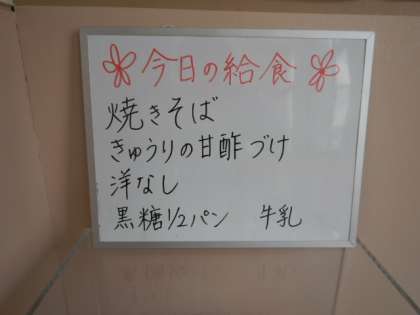 今日の給食
焼きそば
きゅうりの甘酢づけ
洋なし
黒糖1/2パン 牛乳